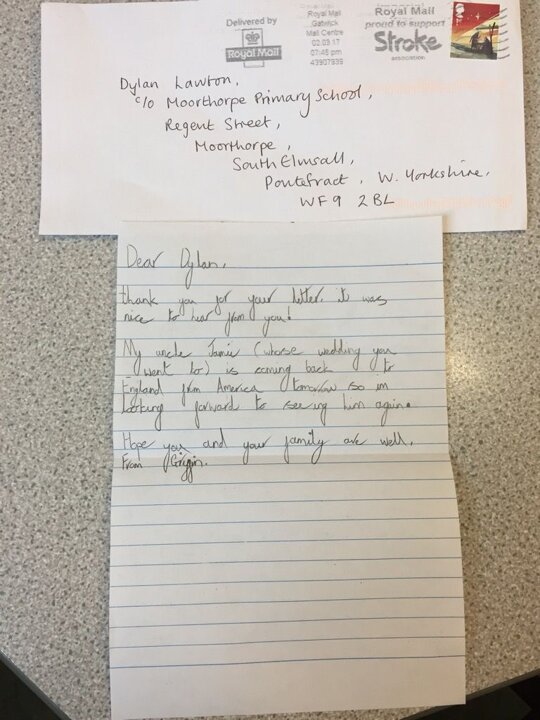 Delivered by
Royal Mail
Royal Mail
Gatwick
Mail Centre
02.03.17
07:45 pm
43907939
Royal Mail
proud to support
Stroke
association
Dylan Lawton,
c/o Moorthorpe Primary School,
Regent Street,
Moorthorpe,
South Elmsall,
Pontefract, W. Yorkshire,
WF9 2BL
Dear Dylan,
thank you for your letter, it was
nice to hear from you!
My uncle Jamie (whose wedding you
went to) is coming back to
England from America tomorrow so im
looking forward to seeing him again.
Hope you and your family are well.
From Griffin.